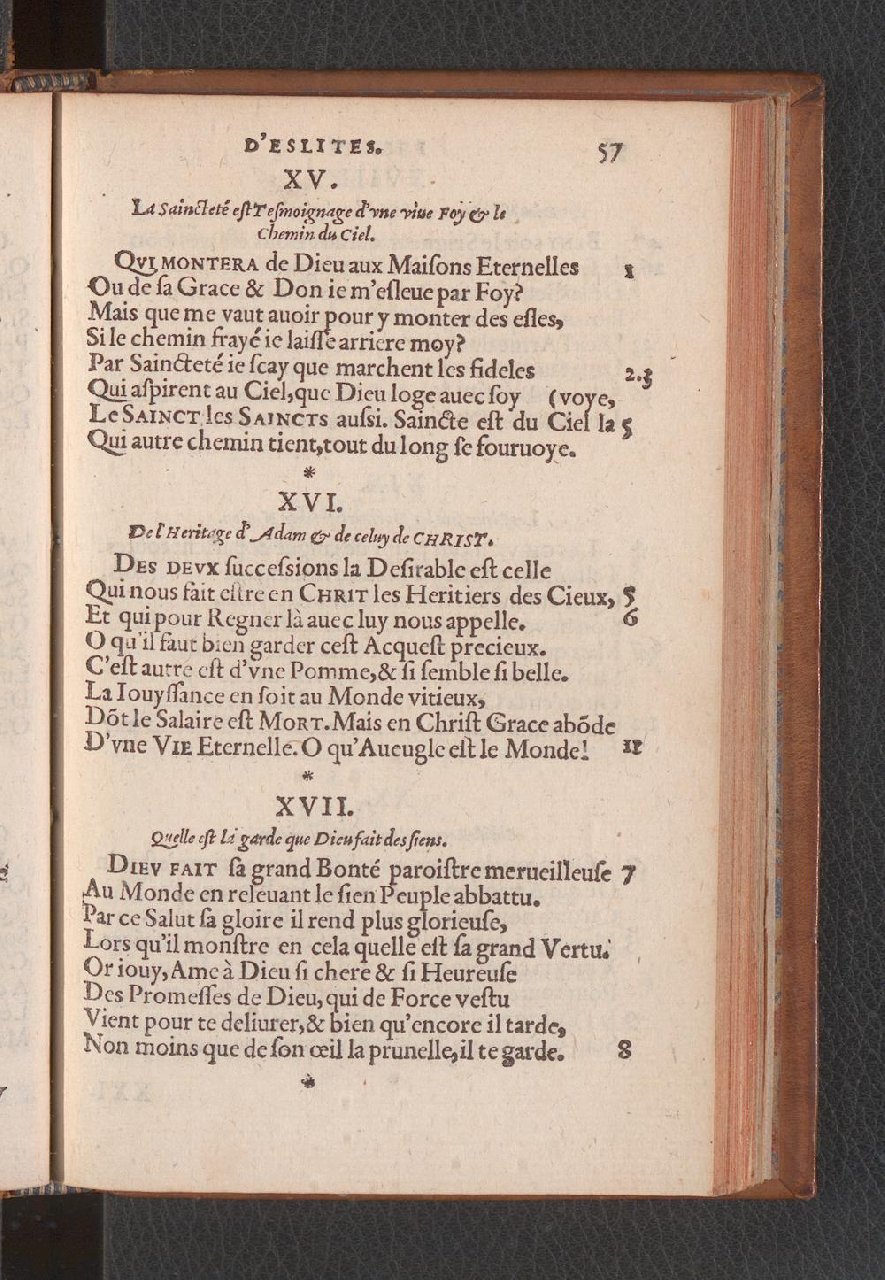 D'ESLITES. 57
XV.
La Saincteté est Tesmoignage d'vne viue Foy & le
Chemin du Ciel.
QVI MONTERA de Dieu aux Maiſons Eternelles 1
Ou de ſa Grace & Don ie m'eſleue par Foy?
Mais que me vaut auoir pour y monter des eſles,
Si le chemin frayé ie laiſſe arriere moy?
Par Saincteté ie ſcay que marchent les fideles 2.3
Qui aſpirent au Ciel, que Dieu loge auec ſoy (voye,
Le SAINCT les SAINCTS auſsi. Saincte eſt du Ciel la 5
Qui autre chemin tient, tout du long ſe fouruoye.
*
XVI.
De l'Heritage d'Adam & de celuy de CHRIST.
DES DEVX ſucceſsions la Deſirable eſt celle
Qui nous fait eſtre en CHRIT les Heritiers des Cieux, 5
Et qui pour Regner là auec luy nous appelle. 6
O qu'il faut bien garder ceſt Acqueſt precieux.
C'eſt autre eſt d'vne Pomme, & ſi ſemble ſi belle.
La Iouyſſance en ſoit au Monde vitieux,
Dōt le Salaire eſt MORT. Mais en Chriſt Grace abōde
D'vne VIE Eternelle. O qu'Aueugle eſt le Monde! 11
*
XVII.
Quelle eſt la garde que Dieu fait des ſiens.
DIEV FAIT ſa grand Bonté paroiſtre merueilleuſe 7
Au Monde en releuant le ſien Peuple abbattu.
Par ce Salut ſa gloire il rend plus glorieuſe,
Lors qu'il monſtre en cela quelle eſt ſa grand Vertu.
Or iouy, Ame à Dieu ſi chere & ſi Heureuſe
Des Promeſſes de Dieu, qui de Force veſtu
Vient pour te deliurer, & bien qu'encore il tarde,
Non moins que de ſon œil la prunelle, il te garde. 8
*